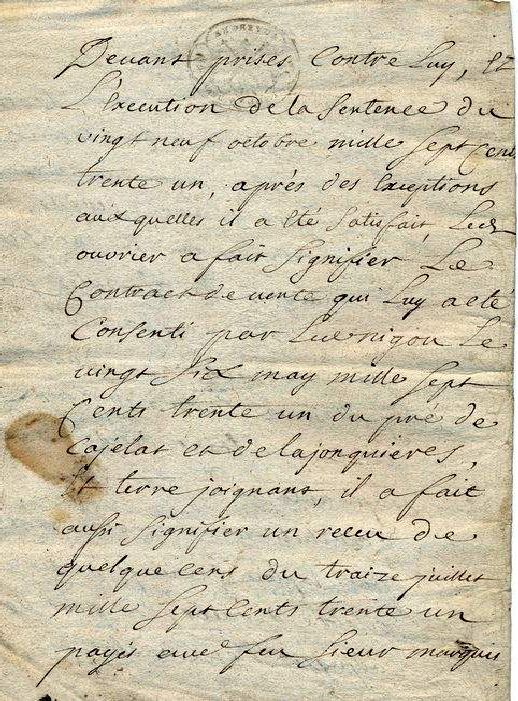 Devant prises Contre Luy, et
L'Execution de la Sentence du
vingt neuf octobre mille Sept Cent
trente un, après des Exceptions
auxquelles il a été Satisfait, Led
ouvrier a fait Signifier Le
Contract de vente qui Luy a eté
Consenti par Luc nigou Le
vingt Six may mille Sept
Cents trente un du pré de
Cajelat et de lajonquieres,
Et terre joignant, il a fait
aussi Signifier un receu de
quelque cens du traize juillet
mille Sept Cents trente un
payés feu Sieur marquis